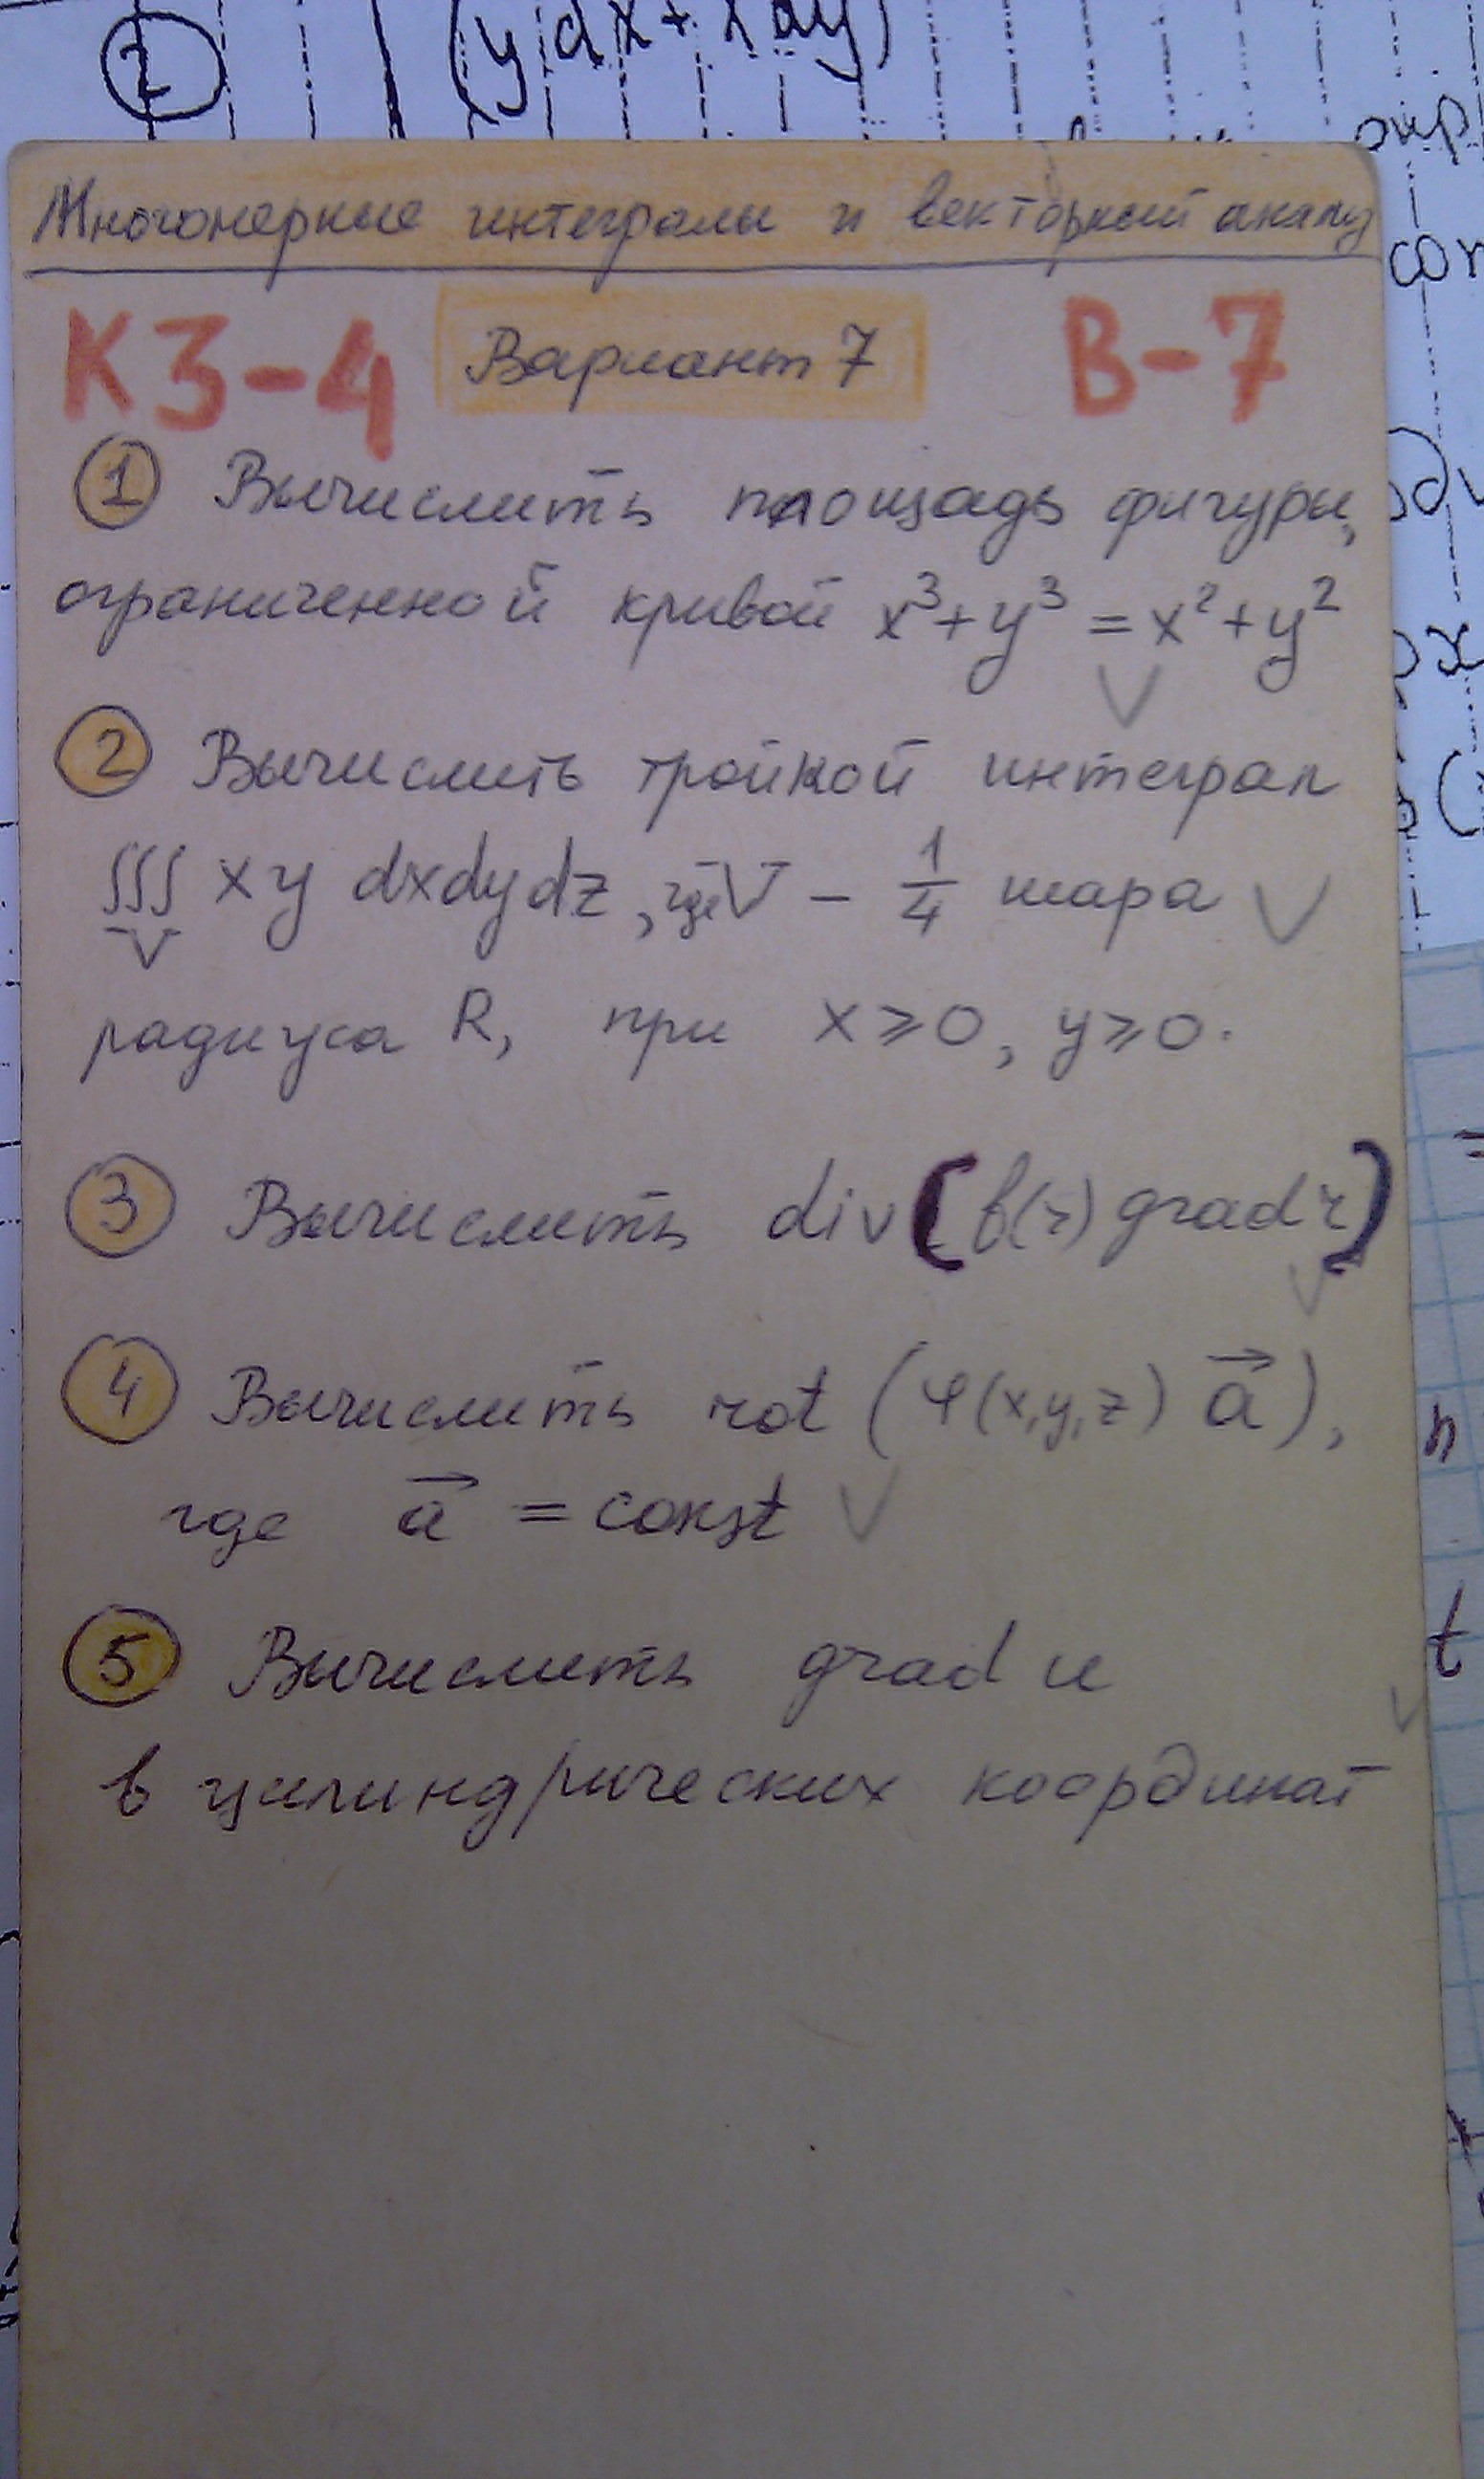 2 (y dx + x dy)
Многомерные интегралы и векторный анализ
КЗ-4 Вариант 7 В-7
1 Вычислить площадь фигуры,
ограниченной кривой x³+y³ = x²+y²
2 Вычислить тройной интеграл
∭ xy dxdydz, где V – 1/4 шара
V
радиуса R, при x⩾0, y⩾0.
3 Вычислить div(f(r) grad r)
4 Вычислить rot (φ(x,y,z) a⃗),
где a⃗ = const
5 Вычислить grad u
в цилиндрических координат